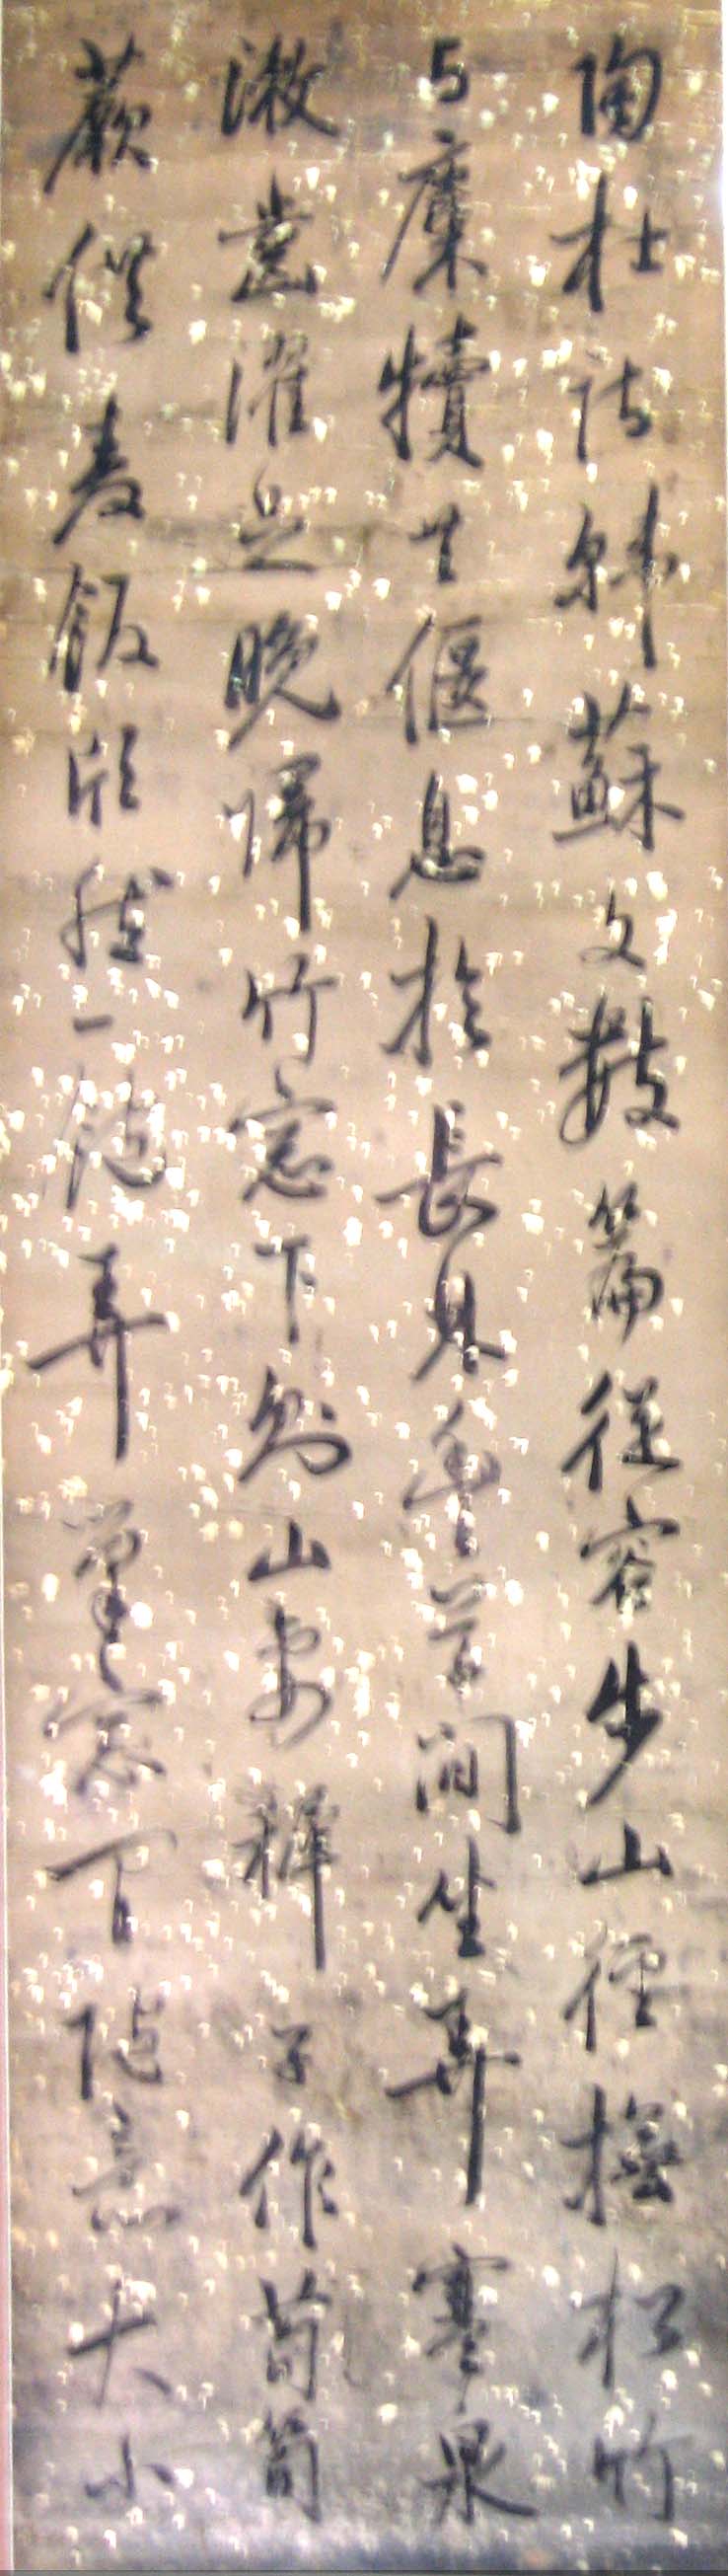 陶杜詩韓蘇文數篇從容步山徑撫松竹
与麋犢共偃息於長豐草間坐弄寒泉
漱齒濯足晚歸竹窓下則山妻稺子作筍
蕨供麥飯欣然一飽弄筆窓間隨意大小